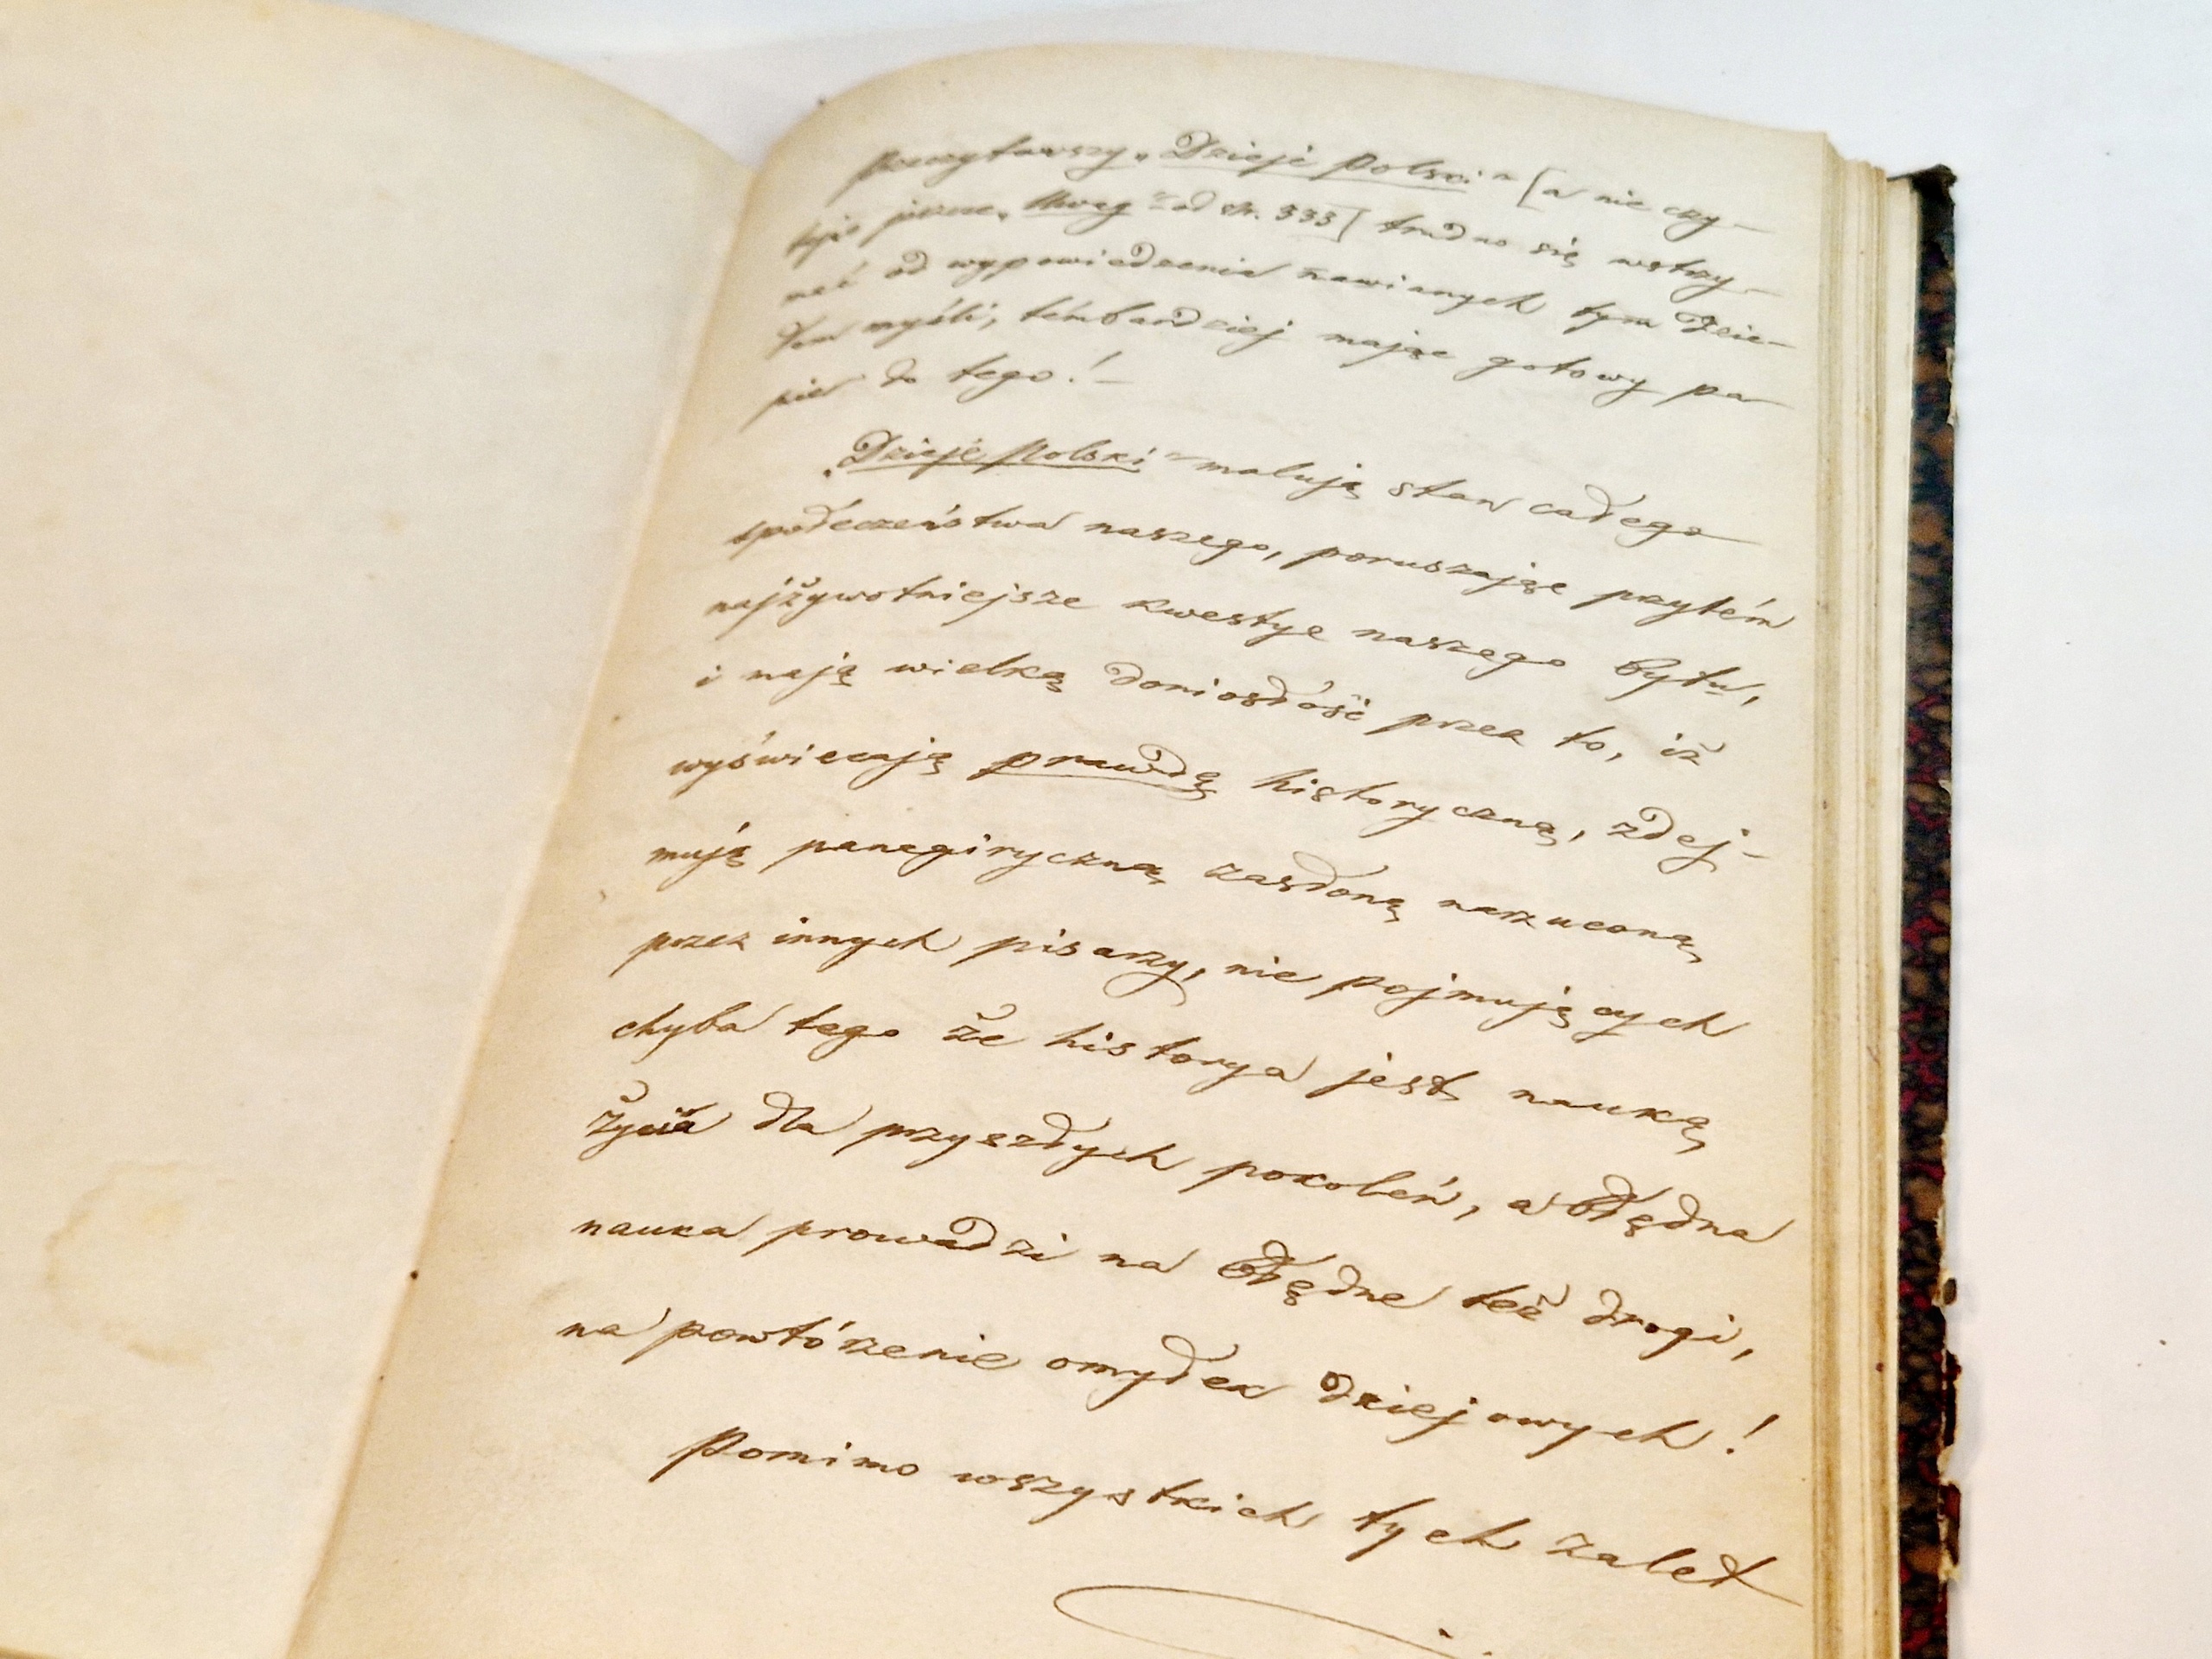 Przeczytawszy „Dzieje Polski“ [a nie czy-
tając jeszcze „Uwag“ od str. 333] trudno się wstrzy-
mać od wypowiedzenia nawianych tym dzie-
łem myśli, tembardziej mając gotowy pa-
pier do tego! –
„Dzieje Polski“ malują stan całego
społeczeństwa naszego, poruszając przytém
najżywotniejsze kwestye naszego bytu,
i mają wielką doniosłość przez to, iż
wyświecają prawdę historyczną, zdej-
mują panegiryczną zasłonę narzuconą
przez innych pisarzy, nie pojmujących
chyba tego że historya jest nauką
życia dla przyszłych pokoleń, a błędna
nauka prowadzi na błędne też drogi,
na powtórzenie omyłek dziejowych!
Pomimo wszystkich tych zalet